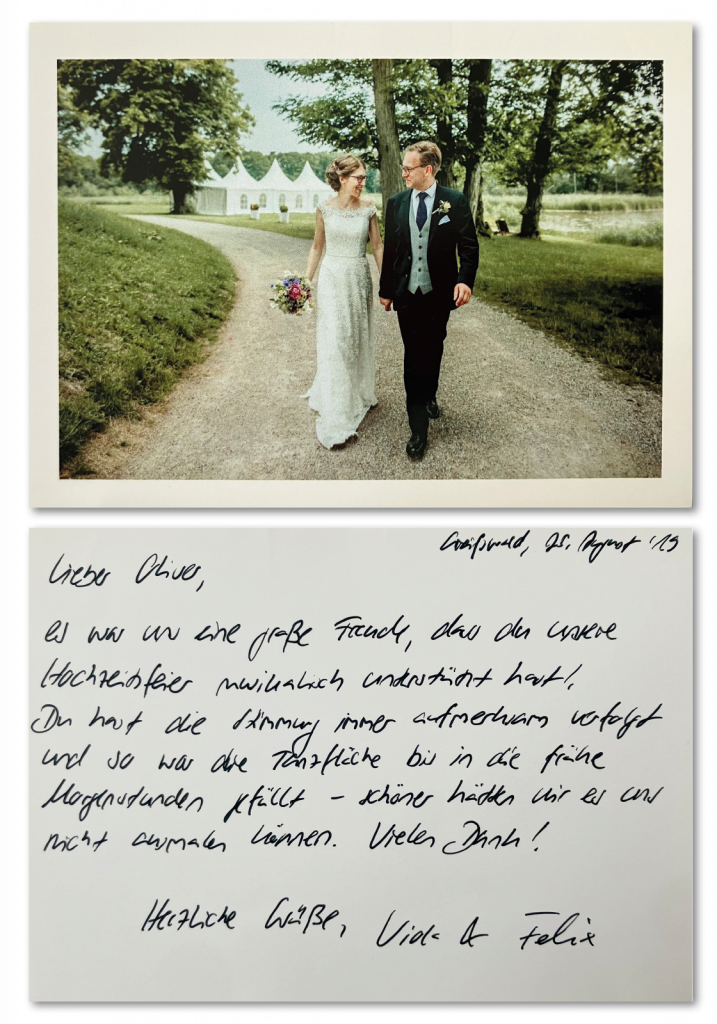 Greifswald, 25. August '19
Lieber Oliver,
es war uns eine große Freude, dass du unsere
Hochzeitsfeier musikalisch unterstützt hast!
Du hast die Stimmung immer aufmerksam verfolgt
und so war die Tanzfläche bis in die frühe
Morgenstunden gefüllt – schöner hätten wir es uns
nicht ausmalen können. Vielen Dank!
Herzliche Grüße, & Felix